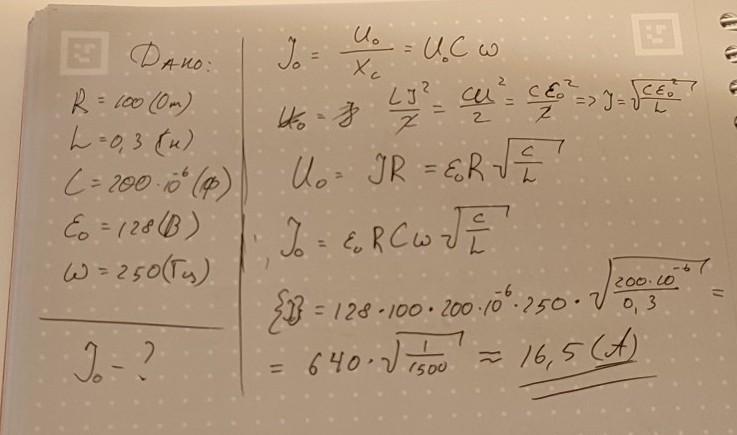 Дано:
R = 100 (Ом)
L = 0,3 (Гн)
C = 200·10⁻⁶ (Ф)
ℰ₀ = 128 (В)
ω = 250 (Гц)
J₀ - ?
J₀ = U₀/X_c = U₀Cω
U₀ = LJ²/2 = CU²/2 = Cℰ₀²/2 => J = √(Cℰ₀²/L)
U₀ = JR = ℰ₀R√(C/L)
J₀ = ℰ₀RCω√(C/L)
{J} = 128·100·200·10⁻⁶·250·√(200·10⁻⁶/0,3) =
= 640·√(1/1500) ≈ 16,5 (А)